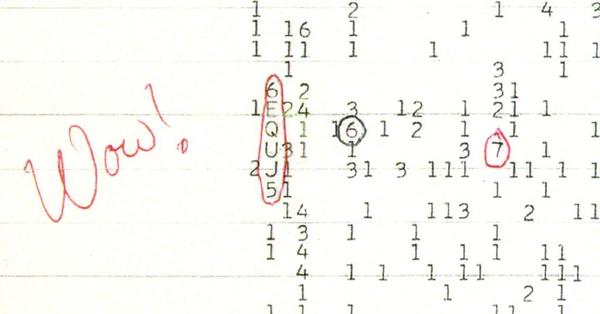 1 2 1 4 3
1 16 1 1 1
1 11 1 1 11 1
1 3 1
6 2 31
1 E 24 3 12 1 21 1
Q 1 16 1 2 1 1 1
Wow! U 31 1 3 7 1
2 J 1 31 3 111 11 1 1
5 1 1 1
14 1 113 2 11
1 3 1 1 1
1 4 1 1 11
4 1 1 1 11 111
1 1 2 1
1 1 1 11 1